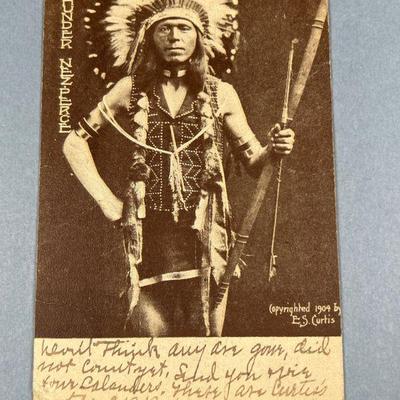 UNDER NEZPERCE
Copyrighted 1904 by
E.S. Curtis
Think any are gone, did
not Count yet, Send you over
four Calanders, These are Curtis's